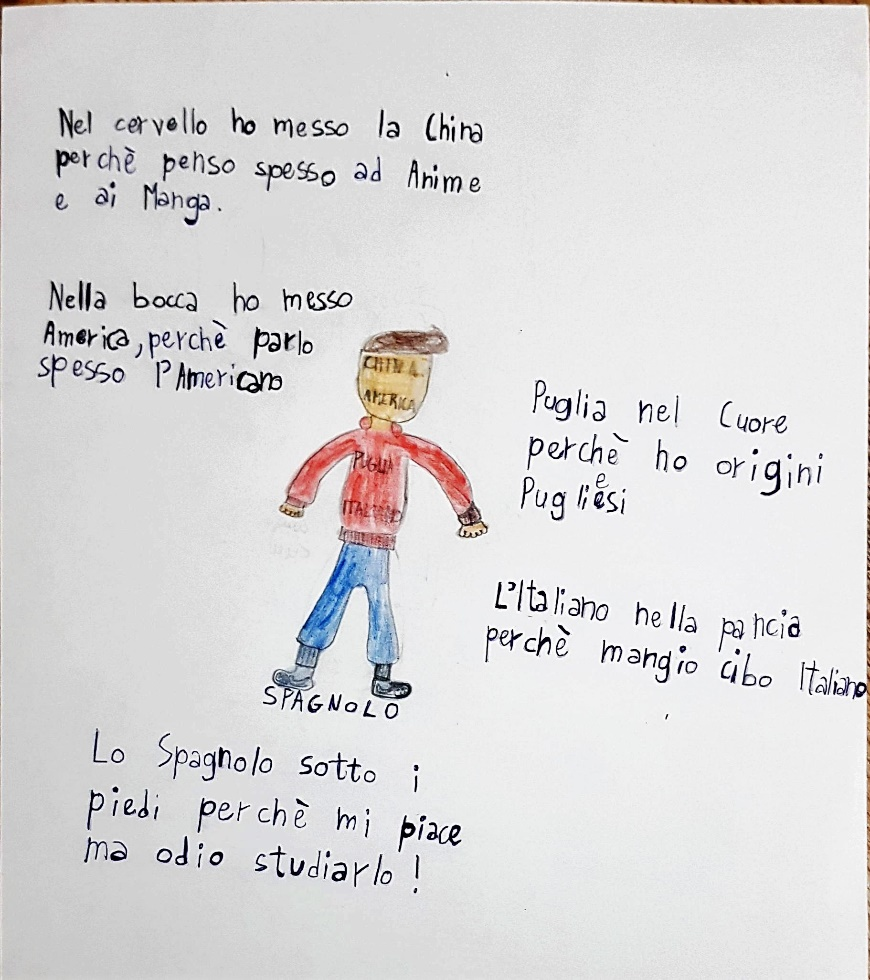 Nel cervello ho messo la China
perchè penso spesso ad Anime
e ai Manga.
Nella bocca ho messo
America, perchè parlo
spesso l'Americano
CHINA
AMERICA
PUGLIA
ITALIANO
Puglia nel Cuore
perchè ho origini
Pugliesi
L'Italiano nella pancia
perchè mangio cibo Italiano
SPAGNOLO
Lo Spagnolo sotto i
piedi perchè mi piace
ma odio studiarlo!